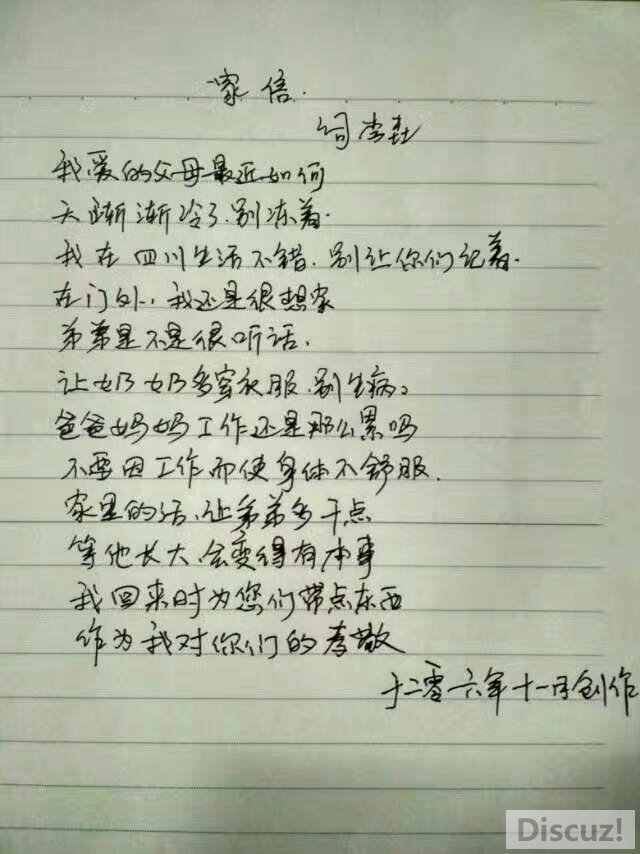 家信
我爱的父母最近如何
天渐渐冷了.别冻着.
我在四川生活不错.别让你们记着.
在门外,我还是很想家
弟弟是不是很听话.
让奶奶多穿衣服.别生病。
爸爸妈妈工作还是那么累吗
不要因工作而使身体不舒服.
家里的活.让弟弟多干点
等他长大.会变得有本事
我回来时为您们带点东西
作为我对你们的孝敬
于二零六年十一月创作
Discuz!